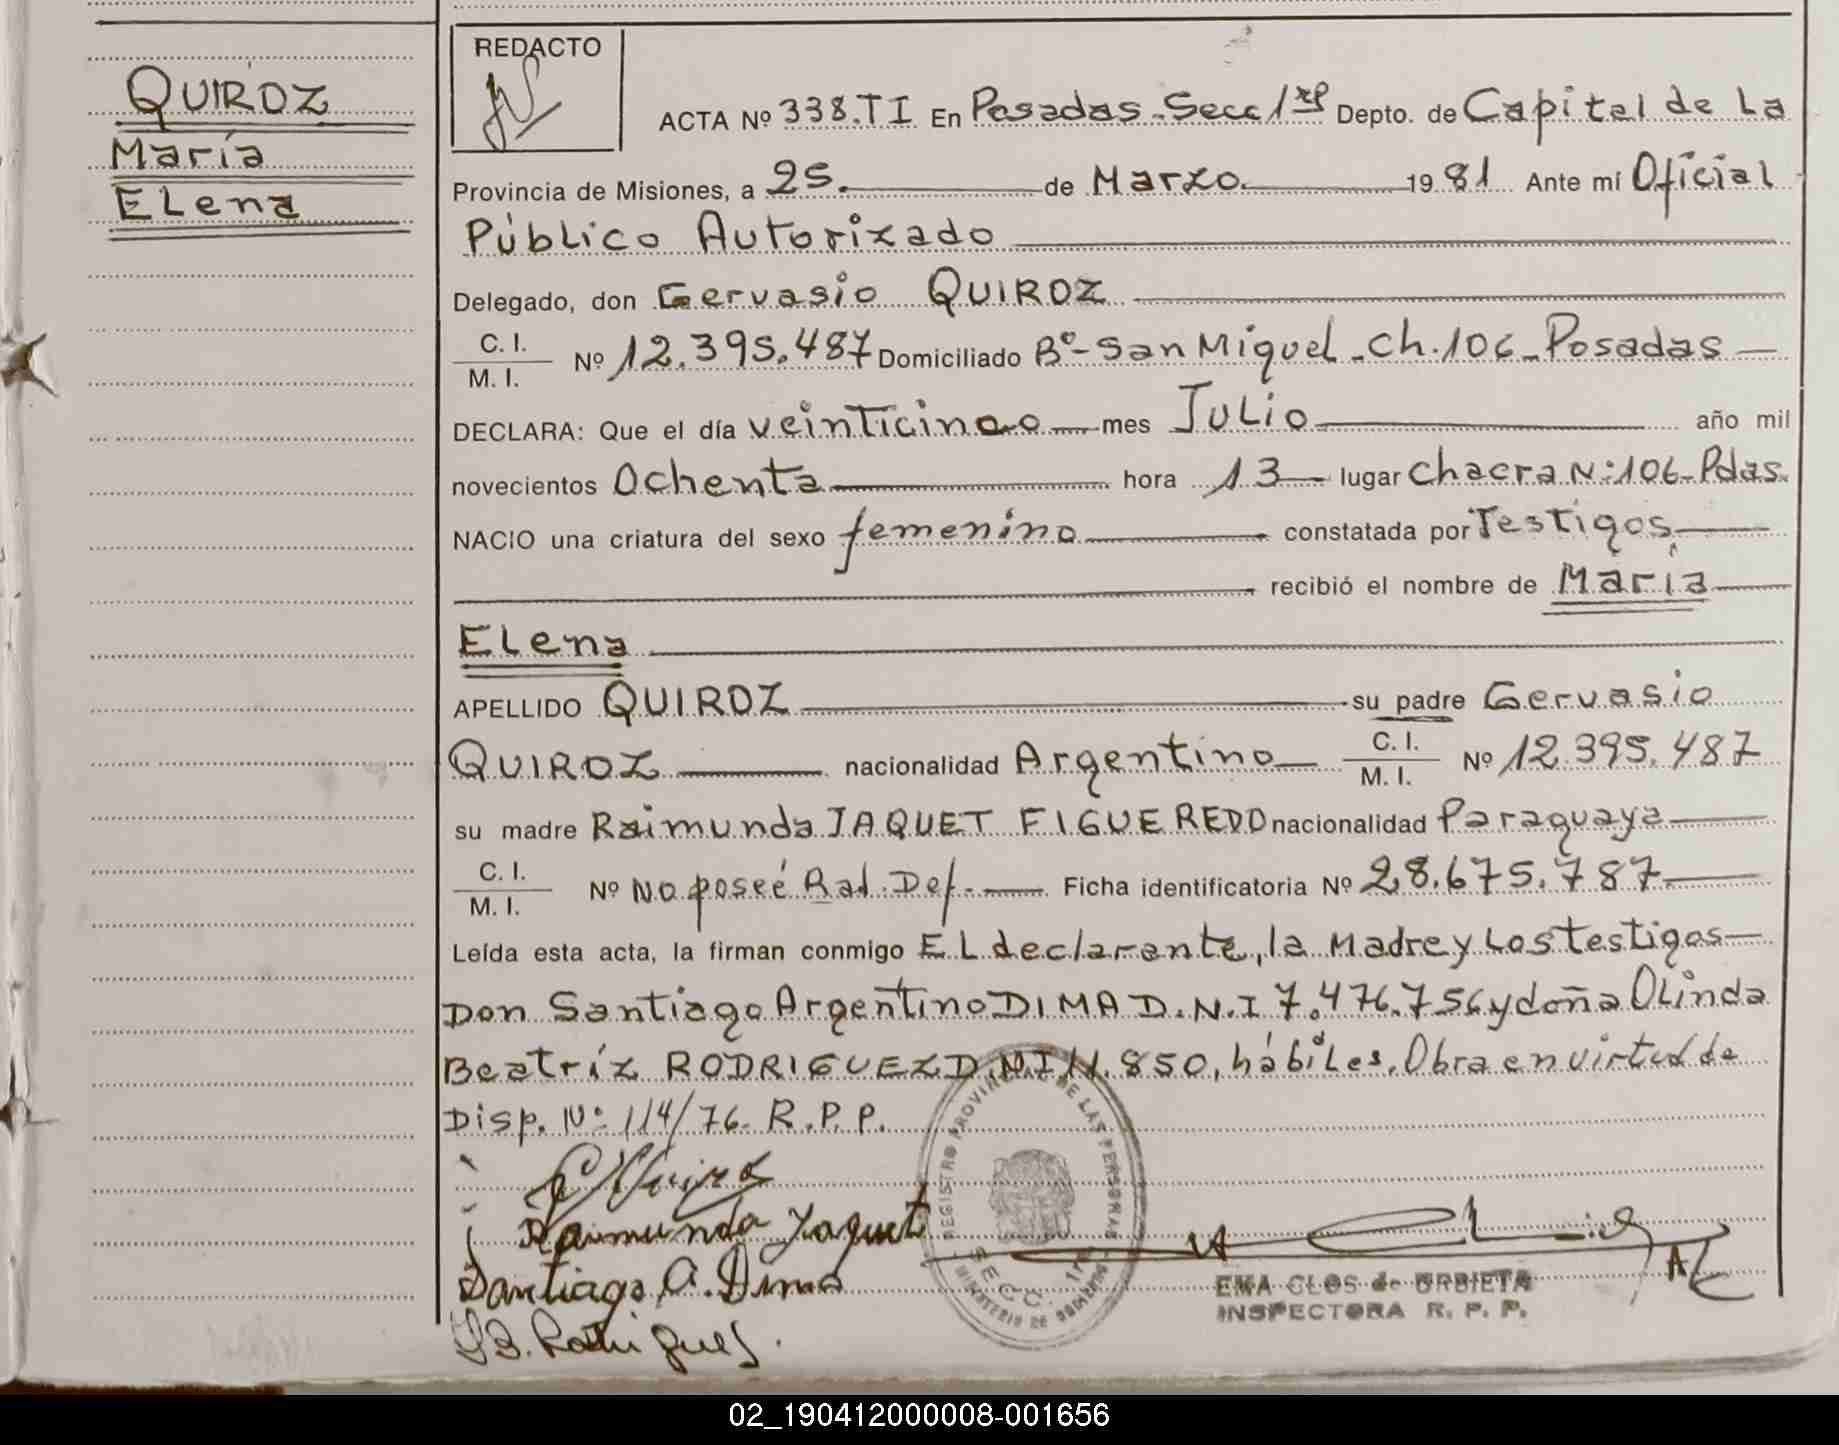 QUIROZ
María
Elena
REDACTO
ACTA Nº 338.TI En Posadas-Secc 1ra Depto. de Capital de La
Provincia de Misiones, a 25. de Marzo. 1981 Ante mí Oficial
Público Autorizado
Delegado, don Gervasio QUIROZ
C. I.
M. I.
Nº 12.395.487 Domiciliado Bº-San Miguel-Ch.106-Posadas
DECLARA: Que el día veinticinco mes Julio año mil
novecientos Ochenta hora 13 lugar Chacra N:106-Pdas.
NACIO una criatura del sexo femenino constatada por Testigos
recibió el nombre de María
Elena
APELLIDO QUIROZ su padre Gervasio
QUIROZ nacionalidad Argentino C. I. M. I. Nº 12.395.487
su madre Raimunda JAQUET FIGUEREDO nacionalidad Paraguaya
C. I.
M. I.
Nº No poseé Rad. Def. Ficha identificatoria Nº 28.675.787
Leída esta acta, la firman conmigo El declarante, la Madre y Los testigos
Don Santiago Argentino DIMA D.N.I 7.476.756 y doña Olinda
Beatríz RODRIGUEZ D.N.I 11.850, hábiles. Obra en virtud de
Disp. Nº 114/76. R.P.P.
Raimunda Jaquet
Santiago A. Dima
B. Rodriguez
REGISTRO PROVINCIAL DE LAS PERSONAS
SECC. 1ra
MINISTERIO DE GOBIERNO
EMA CLOS de URBIETA
INSPECTORA R. P. P.
02_190412000008-001656